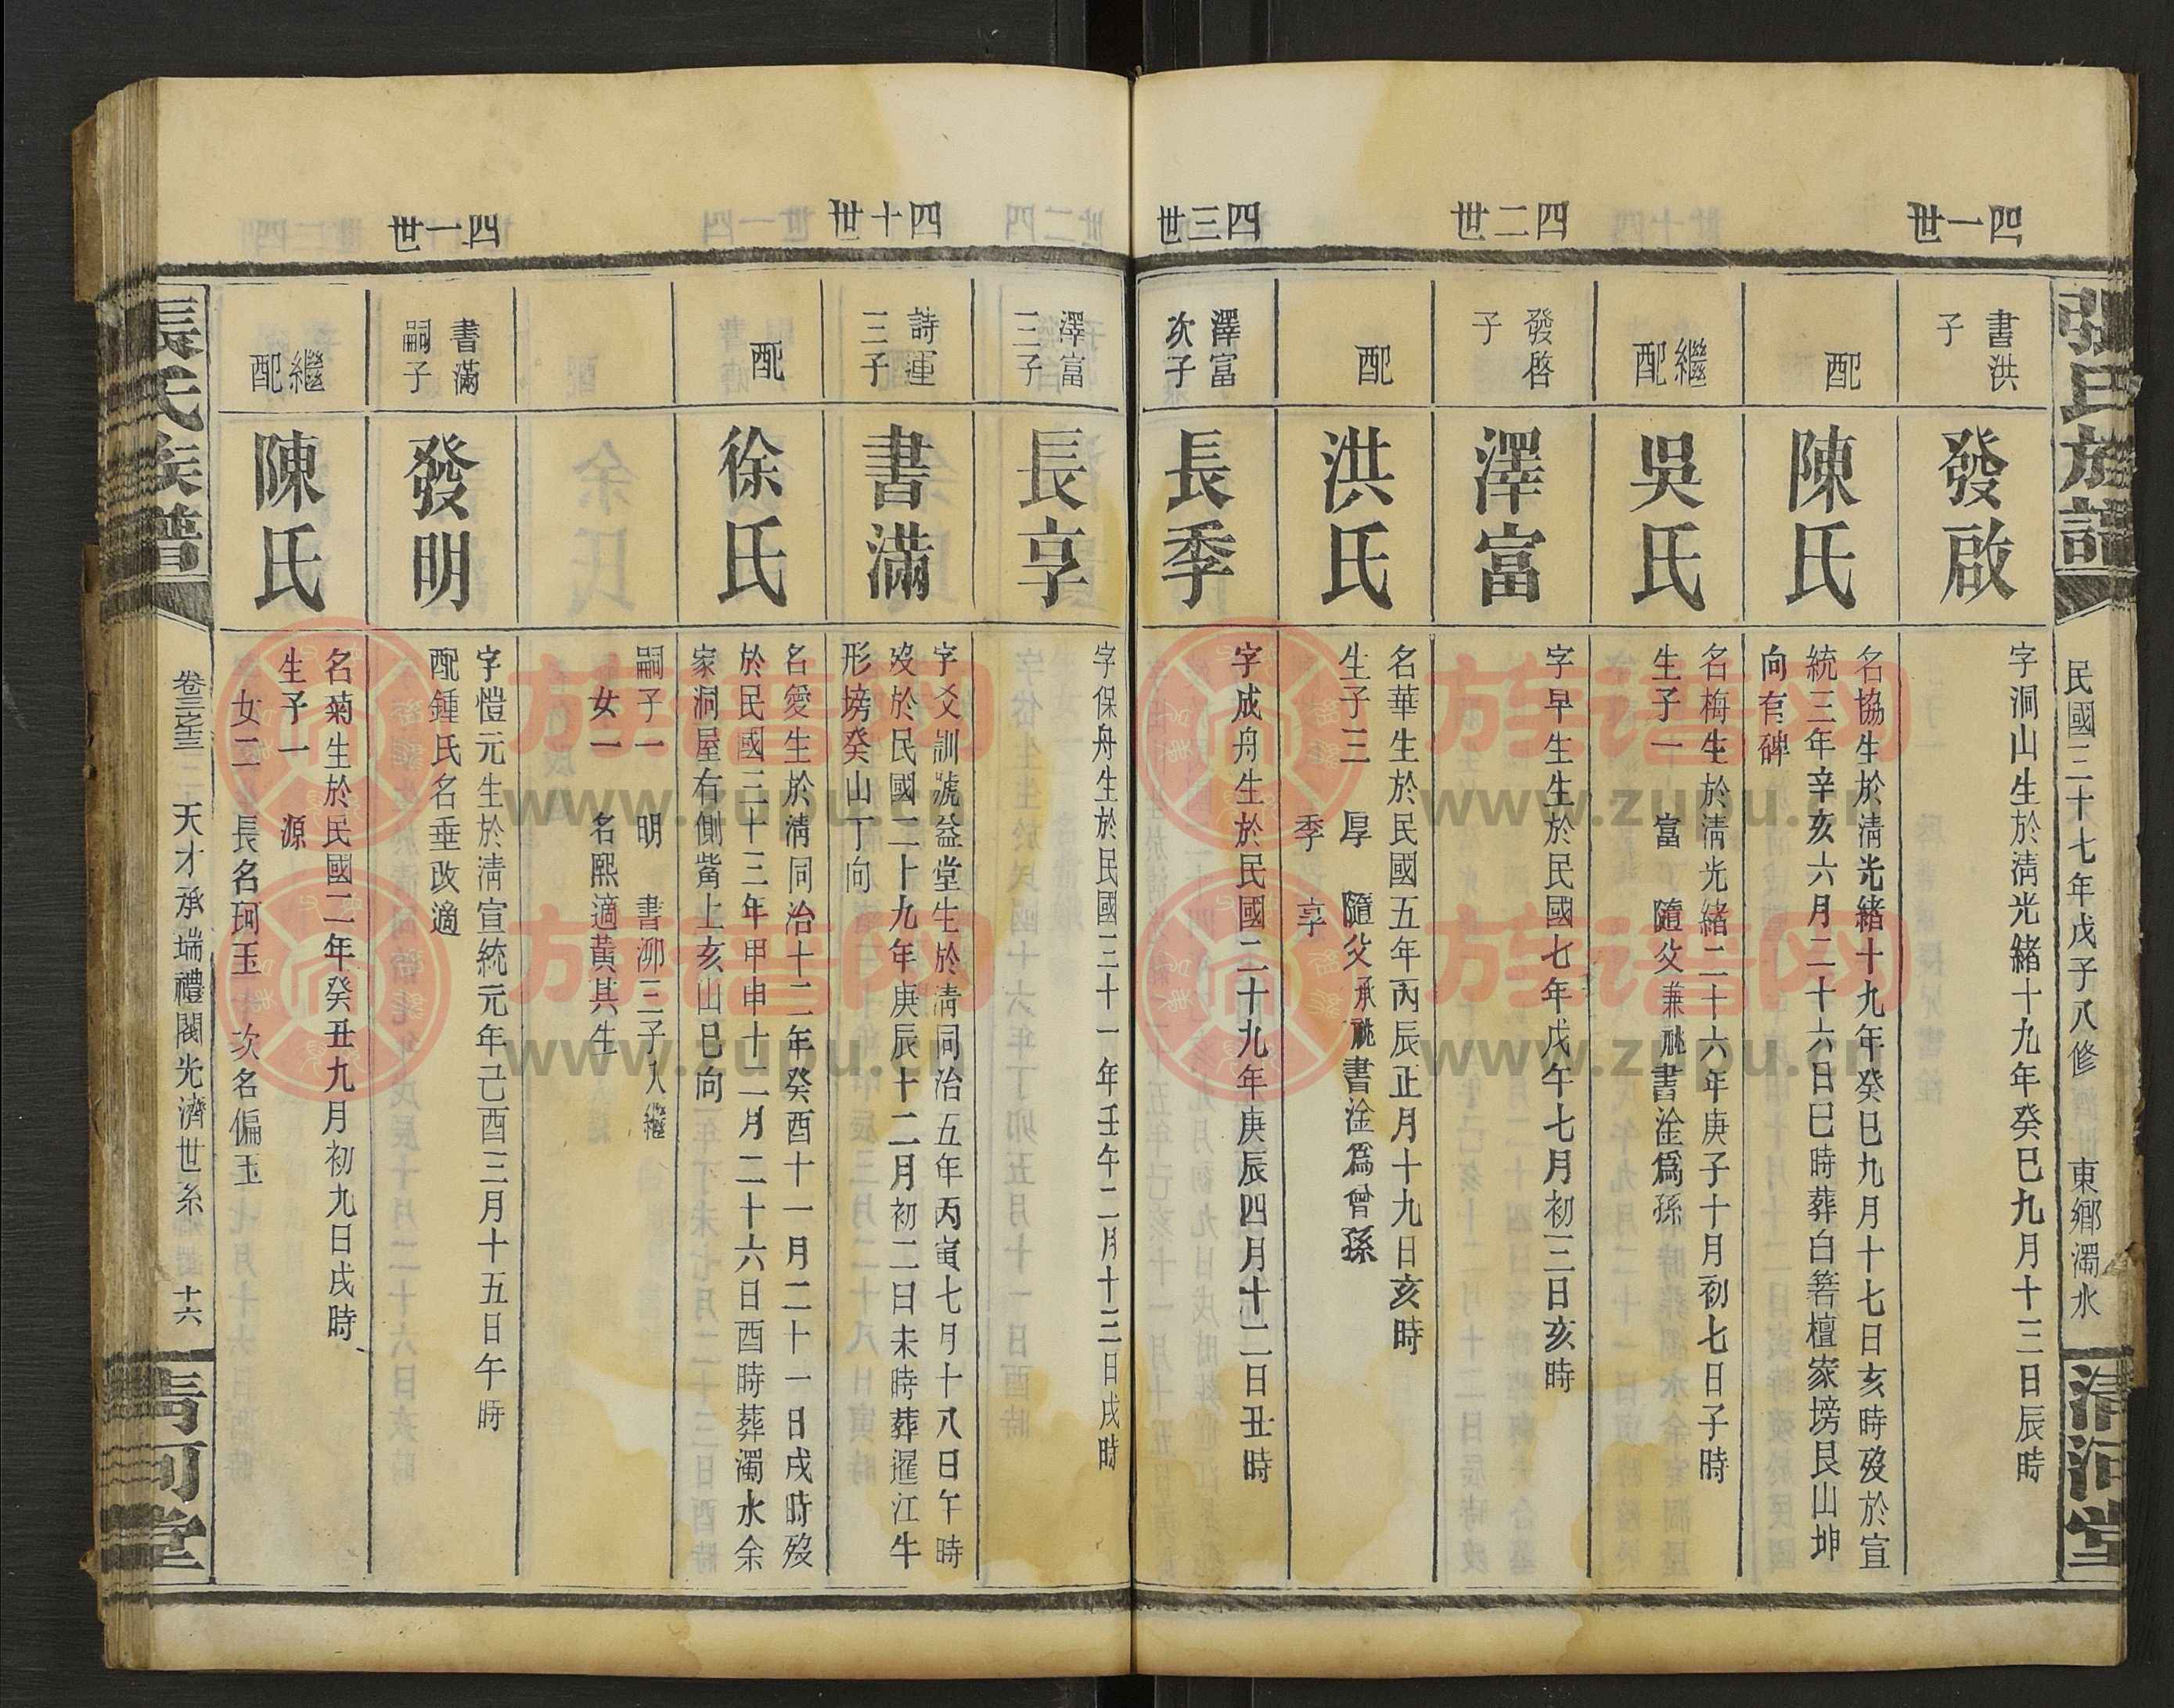 張氏族譜
民國三十七年戊子八修
東鄉濁水
清河堂
四一世
書洪
子
發啟
字洞山生於清光緒十九年癸巳九月十三日辰時
配
陳氏
名協生於清光緒十九年癸巳九月十七日亥時歿於宣
統三年辛亥六月二十六日巳時葬白箬檀家塝艮山坤
向有碑
繼
配
吳氏
名梅生於清光緒二十六年庚子十月初七日子時
生子一 富 隨父兼祧書淦爲孫
四二世
發啓
子
澤富
字早生生於民國七年戊午七月初三日亥時
配
洪氏
名華生於民國五年丙辰正月十九日亥時
生子三 厚 隨父承祧書淦爲曾孫
季 享
四三世
澤富
次子
長季
字成舟生於民國二十九年庚辰四月十二日丑時
澤富
三子
長享
字保舟生於民國三十一年壬午二月十三日戌時
四十世
詩運
三子
書滿
字爻訓號益堂生於清同治五年丙寅七月十八日午時
歿於民國二十九年庚辰十二月初二日未時葬暹江牛
形塝癸山丁向
配
徐氏
名愛生於清同治十二年癸酉十一月二十一日戌時歿
於民國三十三年甲申十二月二十六日酉時葬濁水余
家洞屋右側嘴上亥山巳向
嗣子一 明 書泖三子入繼
女一 名熙適黃其生
四一世
書滿
嗣子
發明
字愷元生於清宣統元年己酉三月十五日午時
配鍾氏名垂改適
繼
配
陳氏
名菊生於民國二年癸丑九月初九日戌時
生子一 源
女二 長名珂玉 次名偏玉
張氏族譜
卷三之三 天才承瑞禮閣光濟世系 十六
清河堂
族谱网
www.zupu.cn
族谱网
www.zupu.cn
族谱网
www.zupu.cn
族谱网
www.zupu.cn